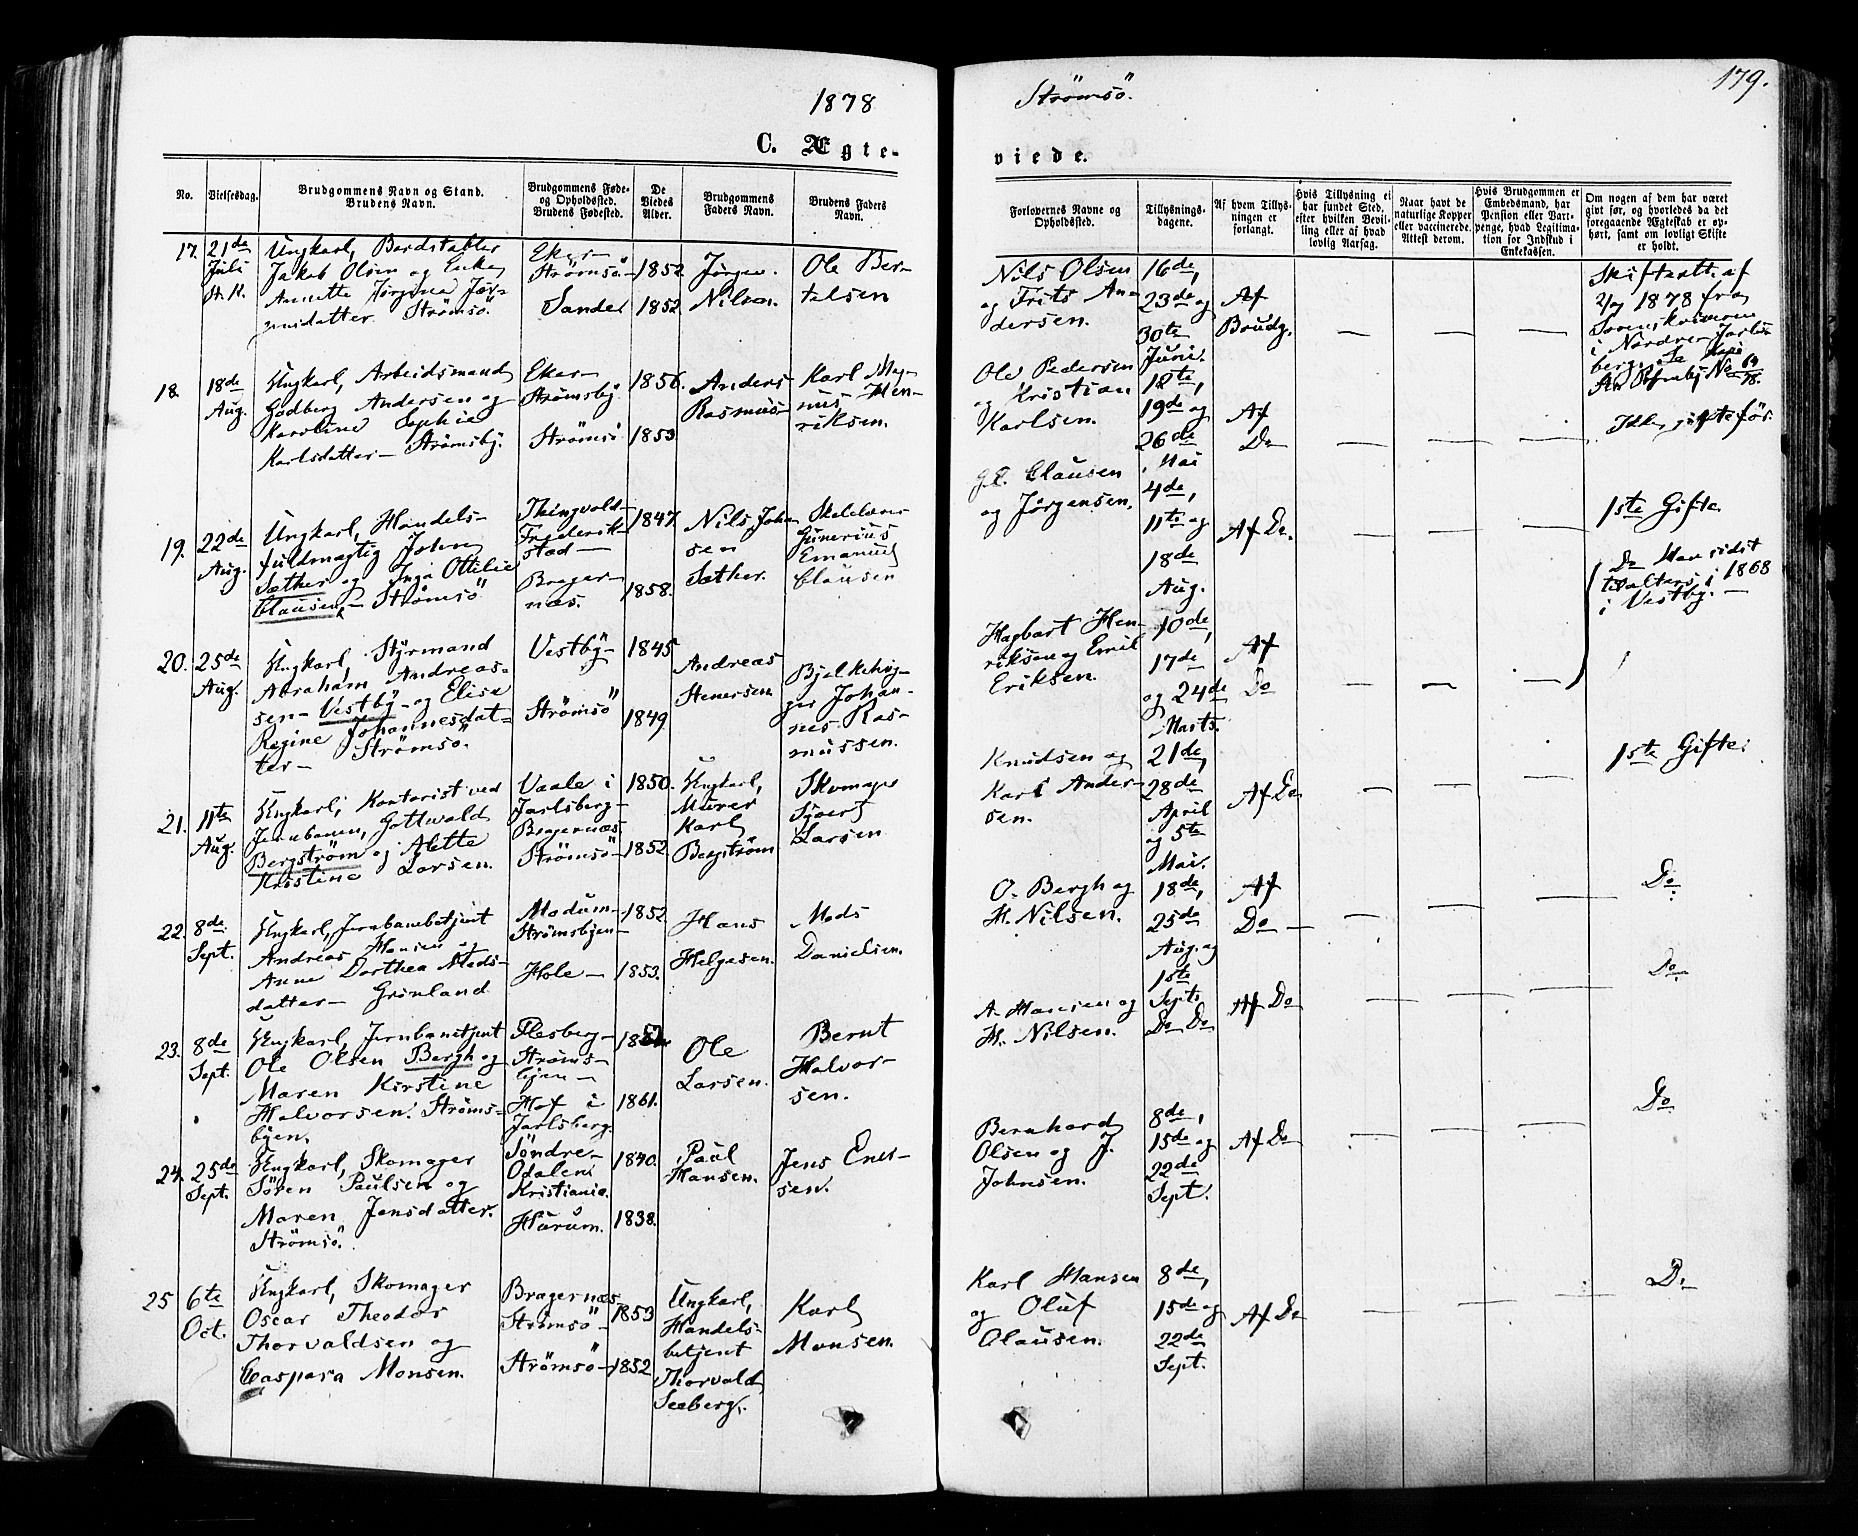 1878
C. Ægte-
No.
Vielsesdag.
Brudgommens Navn og Stand.
Brudens Navn.
Brudgommens Føde-
og Opholdssted.
Brudens Fødested.
De
Viedes
Alder.
Brudgommens
Faders Navn.
Brudens Faders
Navn.
17. 21de
Juli
Ungkarl,
Jakob Olsen og Enke
Annette Jörgine Jör-
Strömsö.
Eker
Strömsö
Sande
1852
1852
Jörgen
Nilsen
Ole Ber-
telsen
18. 18de
Aug.
Ungkarl, Arbeidsmand
Godberg Andersen og
Karoline Sophie
Karlsdatter - Strömsby.
Eker-
Strömsby.
Strömsö
1856.
1853.
Anders
Rasmus-
Karl Mag-
nus Hen-
riksen.
19. 22de
Aug.
Ungkarl, Handels-
fuldmægtig John
Sæther og Inga Ottilie
Clausen - Strömsö
Thingvold-
Frederik-
stad -
Brager-
næs.
1847.
1858.
Nils Johan-
sen
Sæther.
Gunerius
Emanuel
Clausen
20. 25de
Aug.
Ungkarl, Styrmand
Abraham Andreas-
sen - Vestby - og Elise
Regine Johannesdat-
ter - Strömsö.
Vestby -
Strömsö
1845
1849.
Andreas
Stenersen
Bjelkehug-
ger Johan-
nes Ras-
mussen.
21. 11te
Aug.
Ungkarl, Kontorist ved
Jernbanen, Gottwald
Bergström og Alette
Kristine Larsen.
Vaale i
Jarlsberg -
Bragernæs.
Strömsö -
1850.
1852.
Ungkarl,
Murer
Karl
Bergström
Skomager
Syvert
Larsen
22. 8de
Sept.
Ungkarl, Jernbanebetjent
Andreas Hansen og
Anne Dorthea Mads-
datter - Grönland
Modum -
Strömsbyen -
Hole -
1852.
1853.
Hans
Helgesen.
Mads
Danielsen.
23. 8de
Sept.
Ungkarl, Jernbanetjent
Ole Olsen Bergh og
Maren Kirstine
Halvorsen. Ströms-
byen.
Flesberg -
Ströms-
byen -
Hof i
Jarlsberg.
1861.
Ole
Larsen.
Bernt
Halvor-
sen.
24. 25de
Sept.
Ungkarl, Skomager
Sören Paulsen og
Maren Jensdatter.
Strömsö.
Söndre-
Odalen i
Kristiania.
Hurum.
1840.
1838.
Paul
Hansen.
Jens Ener-
sen.
25 6te
Oct.
Ungkarl, Skomager
Oscar Theodor
Thorvaldsen og
Caspara Monsen.
Bragernæs
Strömsö -
Strömsö -
1853
1852
Ungkarl,
Handels-
betjent
Thorvald
Seeberg.
Karl
Monsen.
Strömsö.
179.
viede.
Forlovernes Navne og
Opholdssted.
Tillysnings-
dagene.
Af hvem Tillys-
ningen er
forlangt.
Hvis Tillysning ei
har fundet Sted,
efter hvilken Bevil-
ling eller af hvad
lovlig Aarsag.
Naar havt de
naturlige Kopper
eller vaccinerede.
Attest derom.
Hvis Brudgommen er
Embedsmand, har
Pension eller Vart-
penge, hvad Legitima-
tion for Indskud i
Enkekassen.
Om nogen af dem har været
gift før, og hvorledes da det
foregaaende Ægteskab er op-
hørt, samt om lovligt Skifte
er holdt.
Nils Olsen
og Frits An-
dersen.
16de,
23de og
30te
Juni.
Af
Brudg.
Skifteatt. af
1878 fra
i Nordre Jarls-
berg.
Ole Pedersen
og Kristian
Karlsen.
12te,
19de og
26de
Mai
Af
Do
Ikke gifte för.
Clausen
og Jörgensen.
4de,
11te og
18de
Aug.
Af Do.
1ste Gifte.
Hagbart Hen-
riksen og Emil
Eriksen.
10de,
17de
og 24de
Marts.
Af
Do
Do Han sidst
til alters i 1868
i Vestby. -
Knudsen og
Karl Ander-
sen.
21de,
28de
April
og 5te
Mai.
Af Do
1ste Gifte.
O. Bergh og
H. Nilsen.
18de,
25de
Aug. og
1ste
Sept.
Af
Do -
Do.
A. Hansen og
H. Nilsen.
Do Do
Af Do
Do.
Bernhard
Olsen og J.
Johnsen.
8de,
15de og
22de
Sept.
Af Do
Do
Karl Hansen
og Oluf
Clausen.
8de,
15de og
22de
Sept.
Af Do
Do